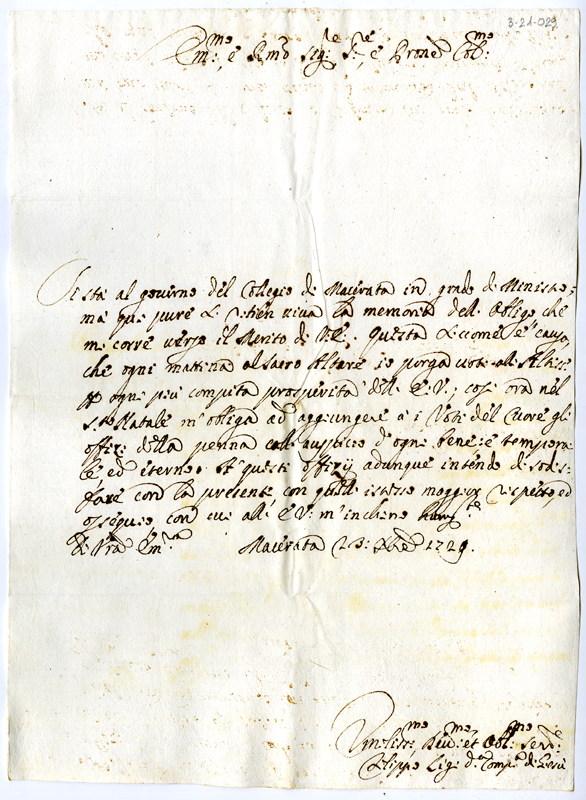 3-21-029
Em:mo e Rmo Sig:re Sre, e Prone Col:mo
Si stà al governo del Collegio di Macerata in grado di Ministro;
mà qui pure si ritien viva la memoria dell' obligo che
mi corre verso il Merito di V.E. Questa siccome è causa,
che ogni mattina al Sacro Altare io porga voti all' Altiss:
p ogni più compita prosperità dell' E.V.; così ora nel
S.to Natale m'obliga ad aggiungere a i Voti del Cuore gli
offizi della penna coll' auspicio d'ogni bene, e tempora
le ed eterno. A questi offizij adunque intendo di sodis-
fare con la presente, con quell' istesso maggior rispetto, ed
ossequio, con cui all' E.V. m'inchino
Di Vra Em:za Macerata 23: Xbre 1729.
Umiliss:mo Devo:mo et Obl:mo Serv:
Filippo